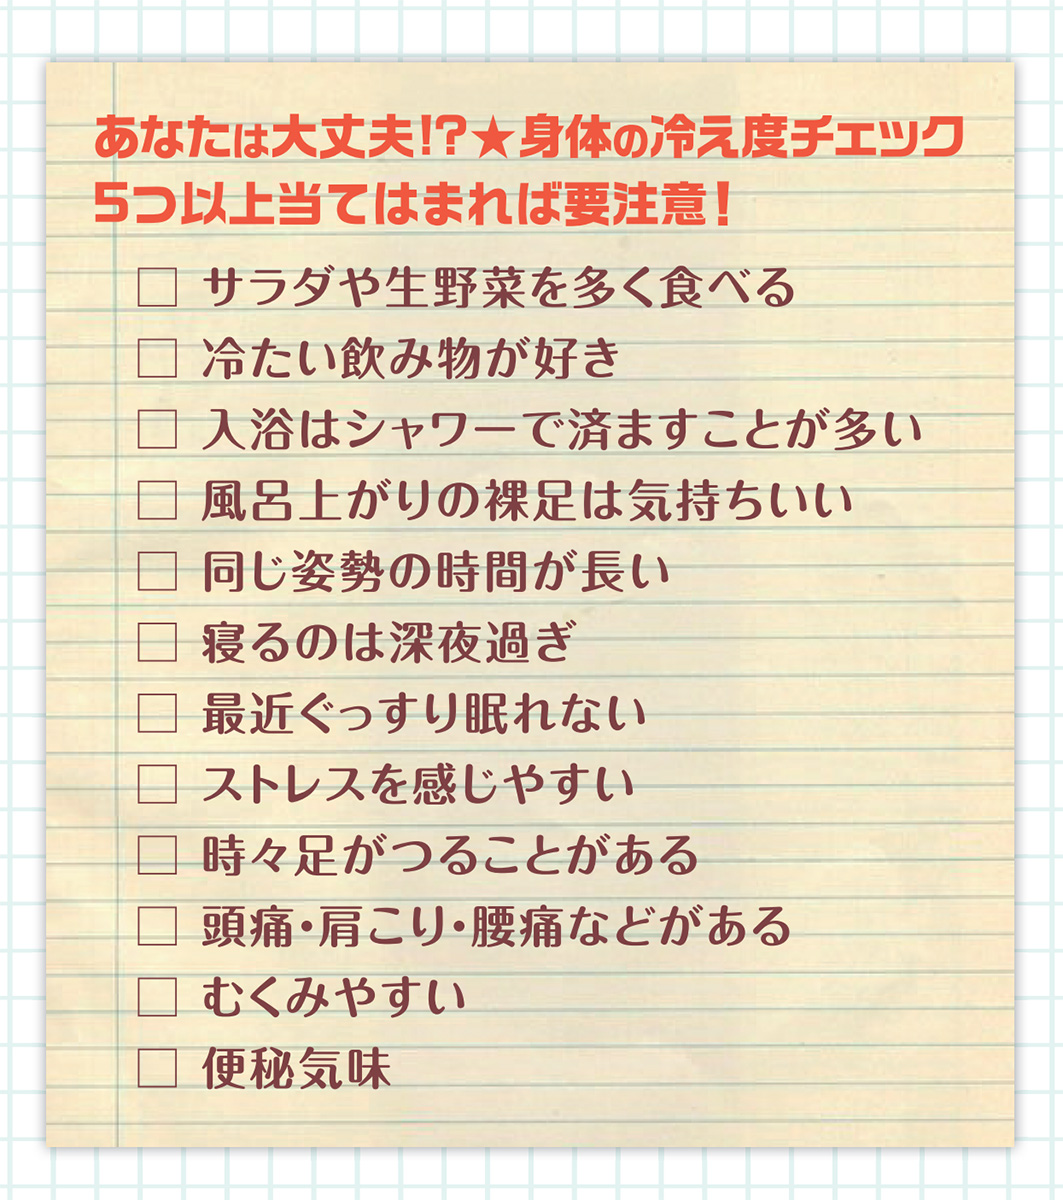 あなたは大丈夫!?★身体の冷え度チェック
5つ以上当てはまれば要注意!
□ サラダや生野菜を多く食べる
□ 冷たい飲み物が好き
□ 入浴はシャワーで済ますことが多い
□ 風呂上がりの裸足は気持ちいい
□ 同じ姿勢の時間が長い
□ 寝るのは深夜過ぎ
□ 最近ぐっすり眠れない
□ ストレスを感じやすい
□ 時々足がつることがある
□ 頭痛・肩こり・腰痛などがある
□ むくみやすい
□ 便秘気味